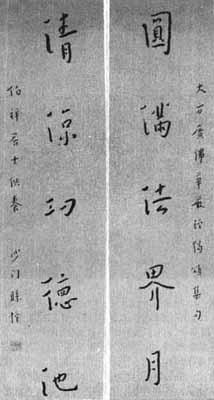 大方廣佛華嚴經偈頌集句
圓滿法界月
清涼功德池
伯祥居士供養 沙門勝